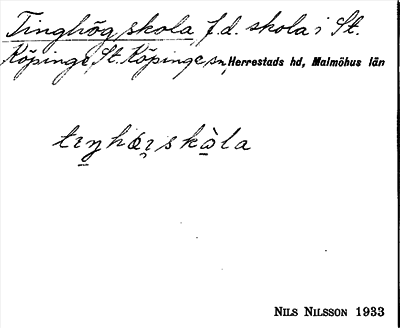 Tinghög skola, f.d. skola i St.
Köpinge, St. Köpinge sn, Herrestads hd, Malmöhus län
NILS NILSSON 1933